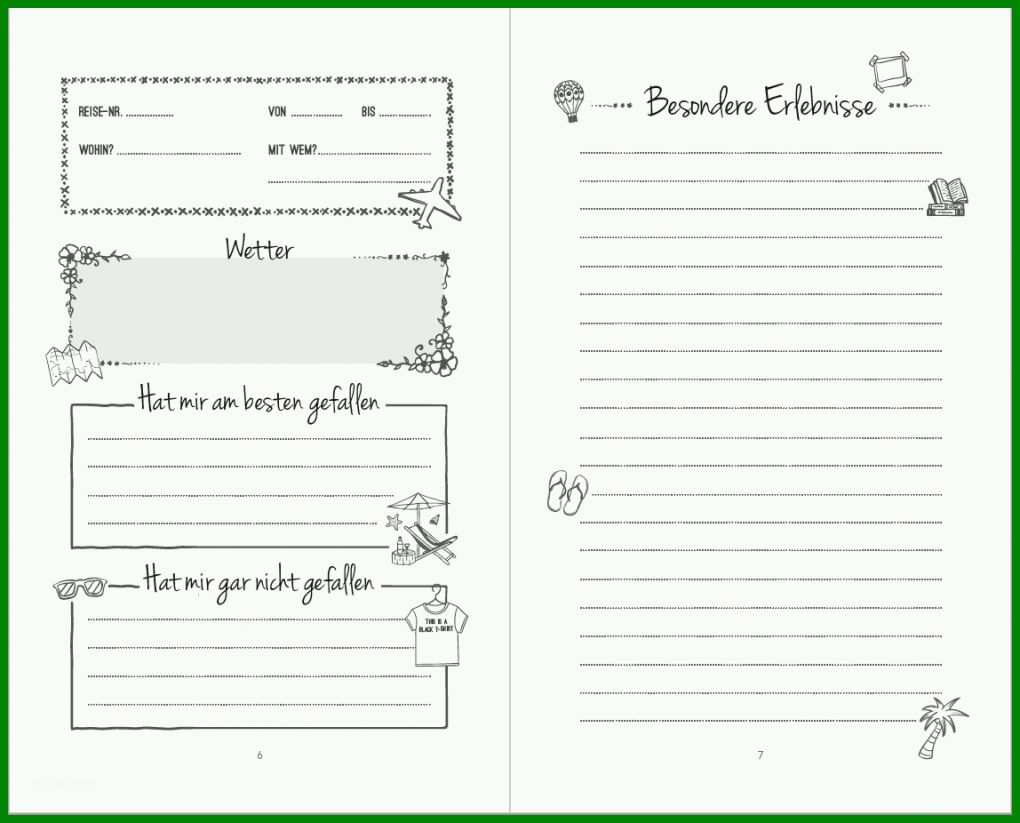 REISE-NR. VON BIS
WOHIN? MIT WEM?
Wetter
Hat mir am besten gefallen
Hat mir gar nicht gefallen
THIS IS A
BLACK T-SHIRT
6
Besondere Erlebnisse
7